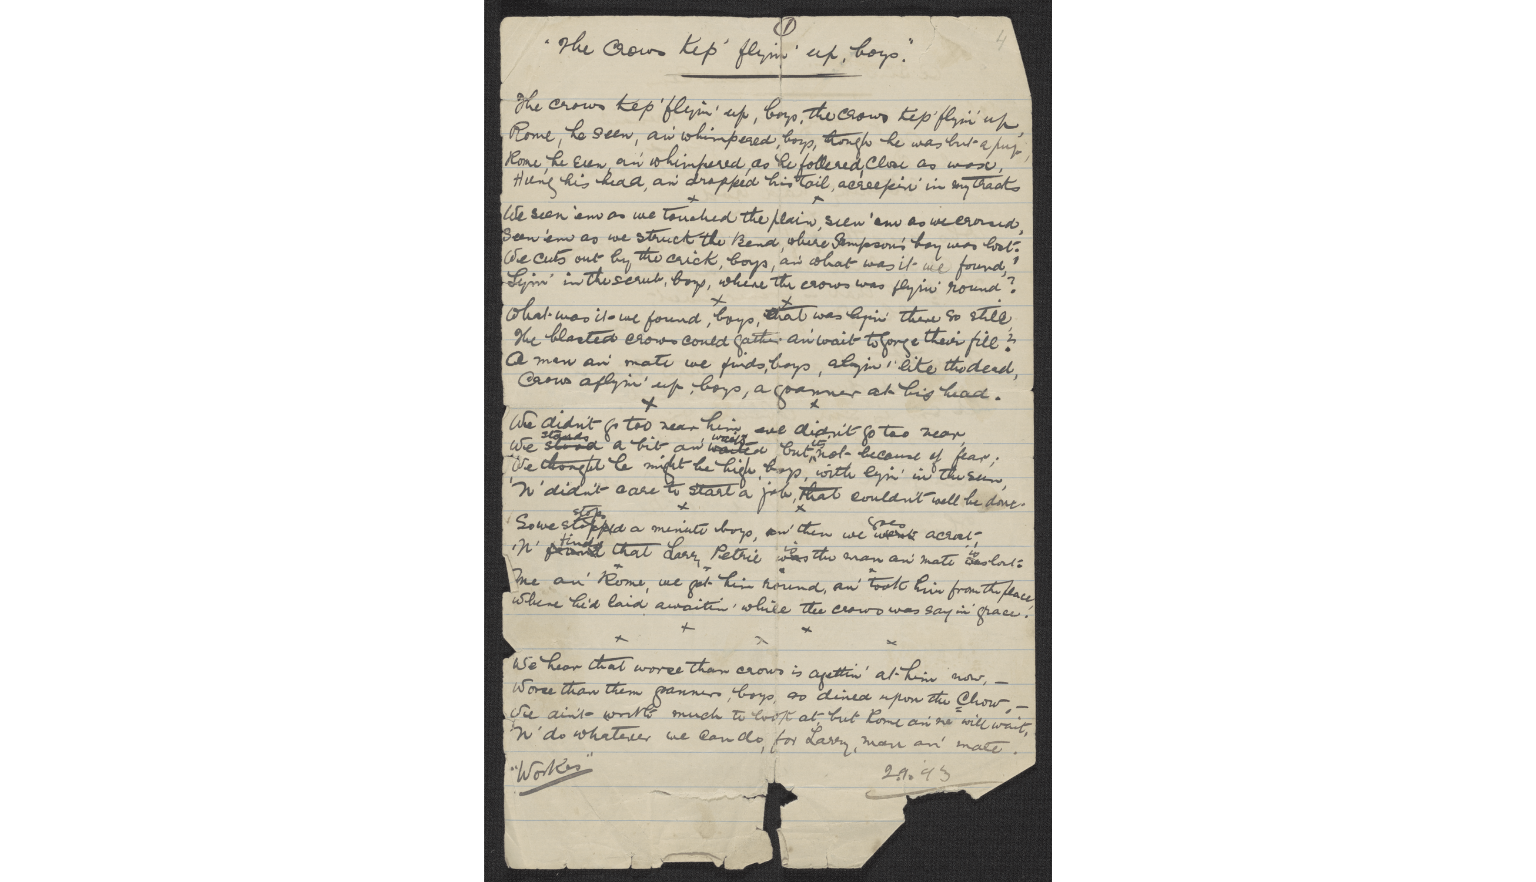 1
4
"The Crows Kep' flyin' up, boys."
The crows kep' flyin' up, boys, the crows kep' flyin' up,
Rome, he seen, an' whimpered, boys, though he was but a pup,
Rome, he seen, an' whimpered, as he follered, close as wax,
Hung his head, an' dropped his tail, acreepin' in my tracks
We seen 'em as we touched the plain, seen 'em as we crorsed,
Seen 'em as we struck the Bend, where Simpson's boy was lost.
We cuts out by the crick, boys, an' what was it we found,
Lyin' in the scrub, boys, where the crows was flyin' round?
What was it we found, boys, that was lyin' there so still,
The blasted crows could gather an' wait to gorge their fill?
A man an' mate we finds, boys, alyin' like the dead,
Crows aflyin' up, boys, a goanner at his head.
We didn't go too near him, we didn't go too near,
stands waits it
We stood a bit an' waited but not because of fear;
We thought he might be high, boys, with lyin' in the sun,
'N' didn't care to start a job, that couldn't well be done.
stops goes
So we stopped a minute boys, an' then we went acrost;
finds is is
'N' found that Larry Petrie was the man an' mate was lost.
Me an' Rome, we got him round, an' took him from the place
Where he'd laid awaitin' while the crows was sayin' grace!
We hear that worse than crows is agettin' at him now, —
Worse than them goanners, boys, as dined upon the Chow, —
We ain't worth much to look at, but Rome an' me will wait,
'N' do whatever we can do, for Larry, man an' mate.
"Workes" 2.9.93